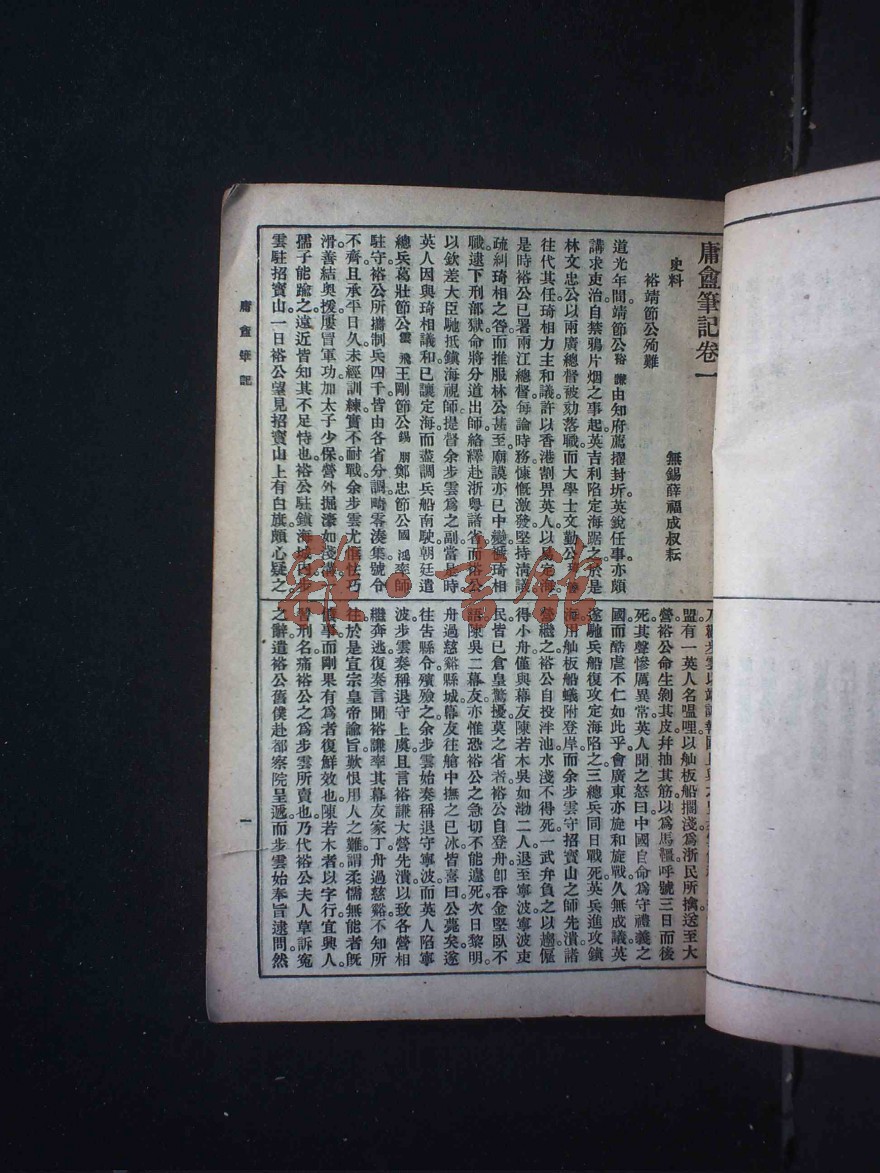 庸盦筆記卷一
無錫薛福成叔耘
史料
裕靖節公殉難
道光年間靖節公裕謙由知府薦擢封圻英銳任事亦頗
講求吏治自禁鴉片烟之事起英吉利陷定海踞之於是
林文忠公以兩廣總督被劾落職而大學士文勤公琦善
往代其任琦相力主和議許以香港割畀英人以易定海
是時裕公已署兩江總督每論時務慷慨激發堅持清議
疏糾琦相之咎而推服林公甚至廟謨亦已中變褫琦相
職逮下刑部獄命將分道出師絡繹赴浙粵諸省而裕公
以欽差大臣馳抵鎭海視師提督余步雲爲之副當是時
英人因與琦相議和已讓定海而盡調兵船南駛朝廷遣
總兵葛壯節公雲飛王剛節公錫朋鄭忠節公國鴻率師
駐守裕公所攜制兵四千皆由各省分調畸零湊集號令
不齊且承平日久未經訓練實不耐戰余步雲尤恇怯巧
滑善結奥援屢冒軍功加太子少保營外掘濠如淺溝一
孺子能踰之遠近皆知其不足恃也裕公駐鎭海城内步
雲駐招寶山一日裕公望見招寶山上有白旗頗心疑之
盟有一英人名嗢哩以舢板船擱淺爲浙民所擒送至大
營裕公命生剝其皮幷抽其筋以爲馬韁呼號三日而後
死其聲慘厲異常英人聞之怒曰中國自命爲守禮義之
國而酷虐不仁如此乎會廣東亦旋和旋戰久無成議英
遂馳兵船復攻定海陷之三總兵同日戰死英兵進攻鎭
海用舢板船蟻附登岸而余步雲守招寶山之師先潰諸
營繼之裕公自投泮池水淺不得死一武弁負之以趨僱
得小舟僅與幕友陳若木吳如渤二人退至寧波寧波吏
民皆已倉皇驚擾莫之省者裕公自登舟卽吞金堅臥不
語陳吳二幕友亦惟恐裕公之急切不能遽死次日黎明
舟過慈谿縣城幕友往艙中撫之已冰皆喜曰公薨矣遂
往告縣令殯殮之余步雲始奏稱退守寧波而英人陷寧
波步雲奏稱退守上虞且言裕謙大營先潰以致各營相
繼奔逃復奏言聞裕謙率其幕友家丁舟過慈谿不知所
往於是宣宗皇帝諭旨歎恨用人之難謂柔懦無能者旣
僨事而剛果有爲者復鮮效也陳若木者以字行宜興人
習刑名痛裕公之爲步雲所賣也乃代裕公夫人草訴寃
之辭遣裕公舊僕赴都察院呈遞而步雲始奉旨逮問然
庸盦筆記
一